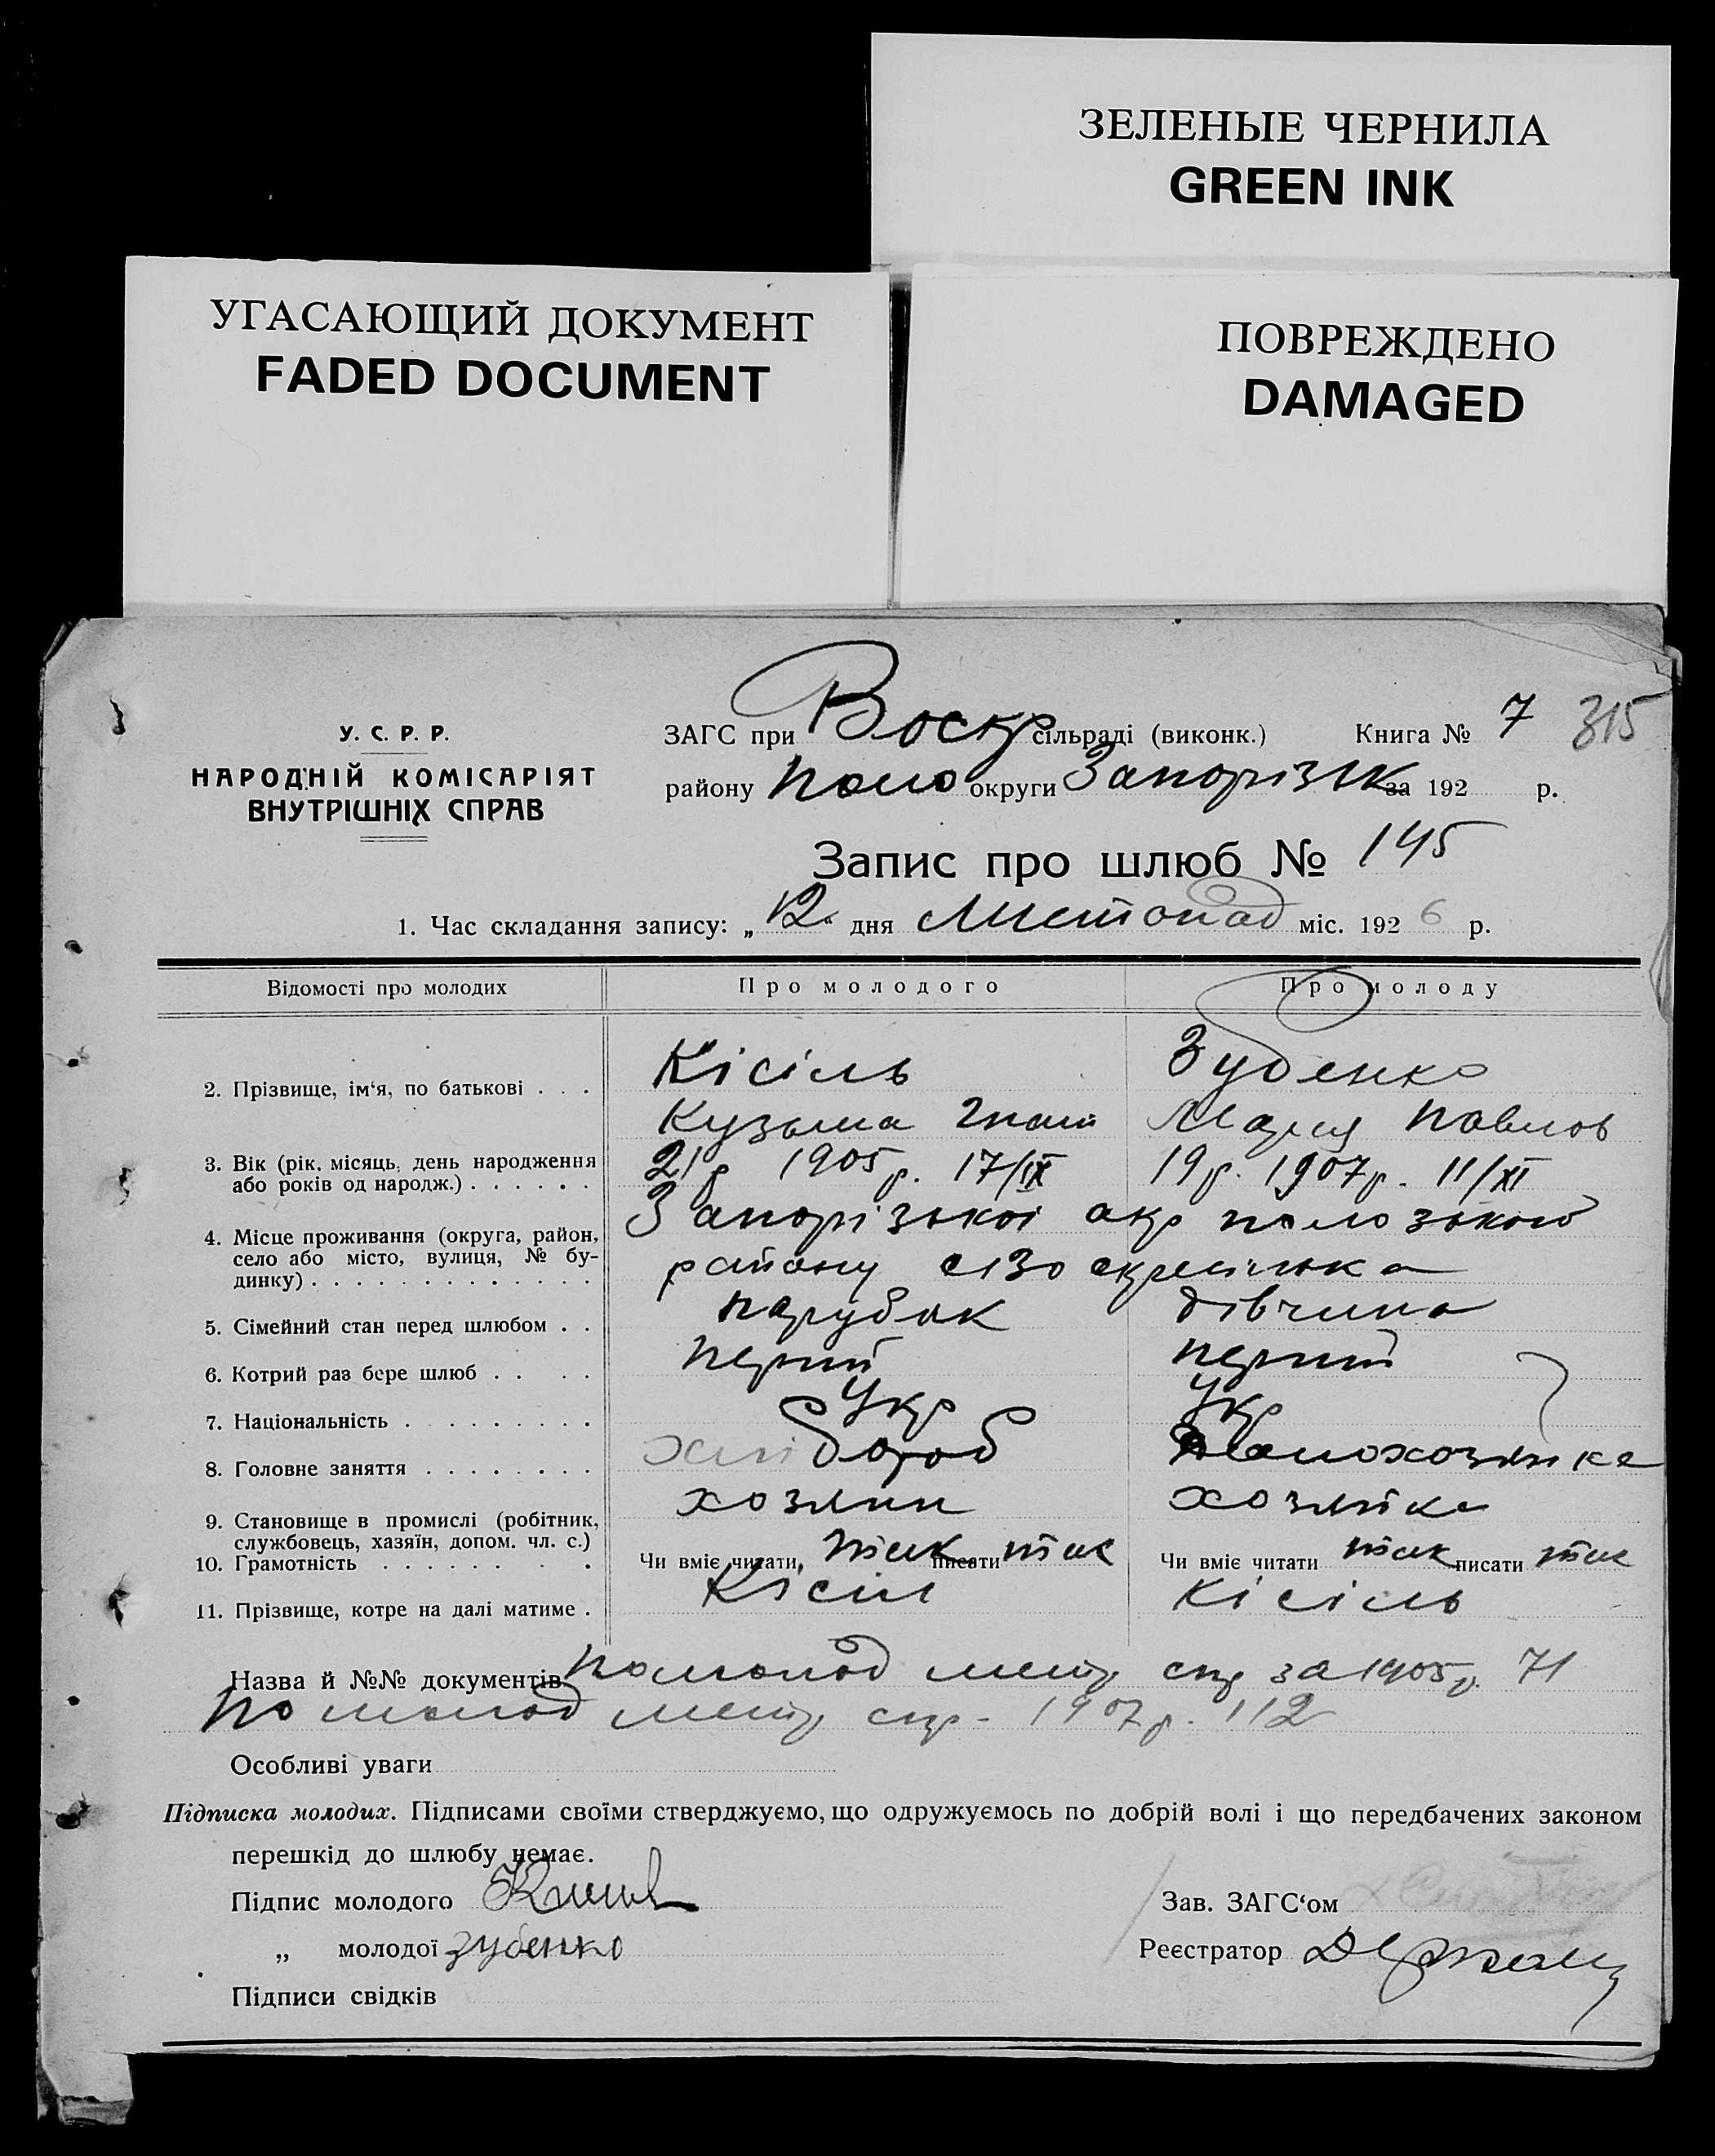 ЗЕЛЕНЫЕ ЧЕРНИЛА
GREEN INK
УГАСАЮЩИЙ ДОКУМЕНТ
FADED DOCUMENT
ПОВРЕЖДЕНО
DAMAGED
У. С. Р. Р.
НАРОДНІЙ КОМІСАРІЯТ
ВНУТРІШНІХ СПРАВ
ЗАГС при Воскр сільраді (виконк.) Книга № 7 315
району Поло округи Запорізьк за 192 р.
Запис про шлюб № 145
1. Час складання запису: „ 12 “ дня Листопад міс. 192 6 р.
Відомості про молодих Про молодого Про молоду
2. Прізвище, ім‘я, по батькові . . . Кісіль Зубенко
Кузьма Гнат Мария Павлов
3. Вік (рік, місяць, день народження 21 р 1905 р. 17/IX 19 р. 1907 р. 11/XI
або років од народж.) . . . . . .
4. Місце проживання (округа, район, Запорізькоі окр полозького
село або місто, вулиця, № бу-
динку) . . . . . . . . . . . . . району
5. Сімейний стан перед шлюбом . . парубок дівчина
6. Котрий раз бере шлюб . . . . перший перший
7. Національність . . . . . . . . . Укр Укр
8. Головне заняття . . . . . . . . хлібороб домохозяйка
9. Становище в промислі (робітник, хозяин хозяйка
службовець, хазяїн, допом. чл. с.)
10. Грамотність . . . . . . . . Чи вміє читати, так писати так Чи вміє читати так писати так
11. Прізвище, котре на далі матиме . Кісіл Кісіль
Назва й №№ документів за 1905 р. 71
1907 р. 112
Особливі уваги
Підписка молодих. Підписами своїми стверджуємо, що одружуємось по добрій волі і що передбачених законом
перешкід до шлюбу немає.
Підпис молодого Зав. ЗАГС‘ом
„ молодої Зубенко Реєстратор
Підписи свідків